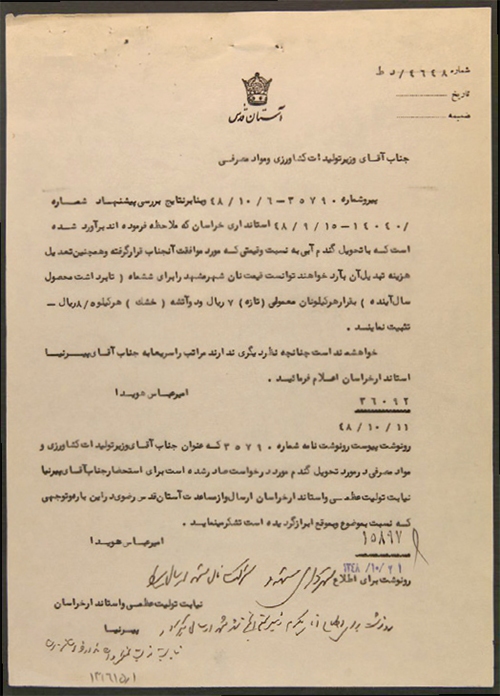 شماره ۴۶۴۸/د ط
تاریخ
ضمیمه
آستان قدس
جناب آقای وزیر تولیدات کشاورزی و مواد مصرفی
پیرو شماره ۳۵۷۹۰-۴۸/۱۰/۶ و بنابر نتایج بررسی پیشنهاد شماره
۱۴۰۲۰/۰-۴۸/۹/۱۵ استانداری خراسان که ملاحظه فرموده اند برآورد شده
است که با تحویل گندم آبی به نسبت و قیمتی که مورد موافقت آنجناب قرار گرفته و همچنین تعدیل
هزینه تبدیل آن بآرد خواهند توانست قیمت نان شهر مشهد را برای ششماه ( تا برداشت محصول
سال آینده ) بقرار هر کیلو نان معمولی (تازه) ۷ ریال و دو آتشه ( خشک ) هر کیلو ۸/۵ ریال -
تثبیت نمایند .
خواهشمند است چنانچه نظر دیگری ندارند مراتب را سریعا به جناب آقای پیرنیا
استاندار خراسان اعلام فرمائید .
امیر عباس هویدا
۳۶۰۹۲
۴۸/۱۰/۱۱
رونوشت پیوست رونوشت نامه شماره ۳۵۷۹۰ که عنوان جناب آقای وزیر تولیدات کشاورزی و
مواد مصرفی در مورد تحویل گندم مورد درخواست صادر شده است برای استحضار جناب آقای پیرنیا
نیابت تولیت عظمی و استاندار خراسان ارسال و از مساعدت آستان قدس رضوی در این باره و توجهی
که نسبت بموضوع و بموقع ابراز گردیده است تشکر مینماید .
امیر عباس هویدا
۱۵۸۹۷
۱۳۴۸/۱۰/۲۱
رونوشت برای اطلاع
نیابت تولیت عظمی و استاندار خراسان
پیرنیا